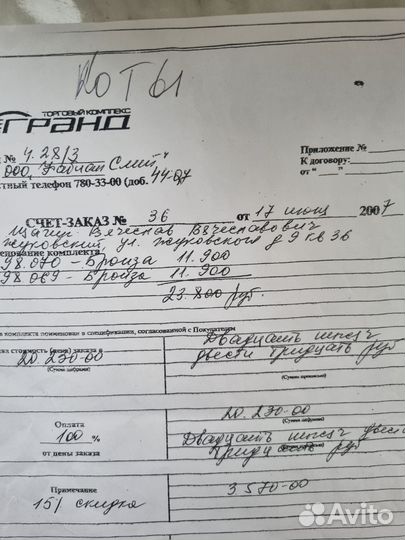 КОТЫ
ТОРГОВЫЙ КОМПЛЕКС
ГРАНД
№ 4.28/3
Приложение №
ООО, Фабиан Смит"
К договору:
тный телефон 780-33-00 (доб. 44-07
от " "
СЧЕТ-ЗАКАЗ № 36 от 17 июня 2007
Вячеслав Вячеславович
Жуковский, ул. Жуковского д 9 кв 36
нование комплекта
98.070 - Бронза 11.900
98.069 - Бронза 11.900
23.800 руб.
в комплекта поименован в спецификации, согласованной с Покупателем
стоимость (цена) заказа
20.230-00
(Сумма цифрами)
Двадцать тысяч
двести тридцать руб
(Сумма прописью)
Оплата
100 %
от цены заказа
20.230-00
(Сумма цифрами)
Двадцать тысяч двести
тридцать руб
Примечание
15% скидка
3570-00
Avito